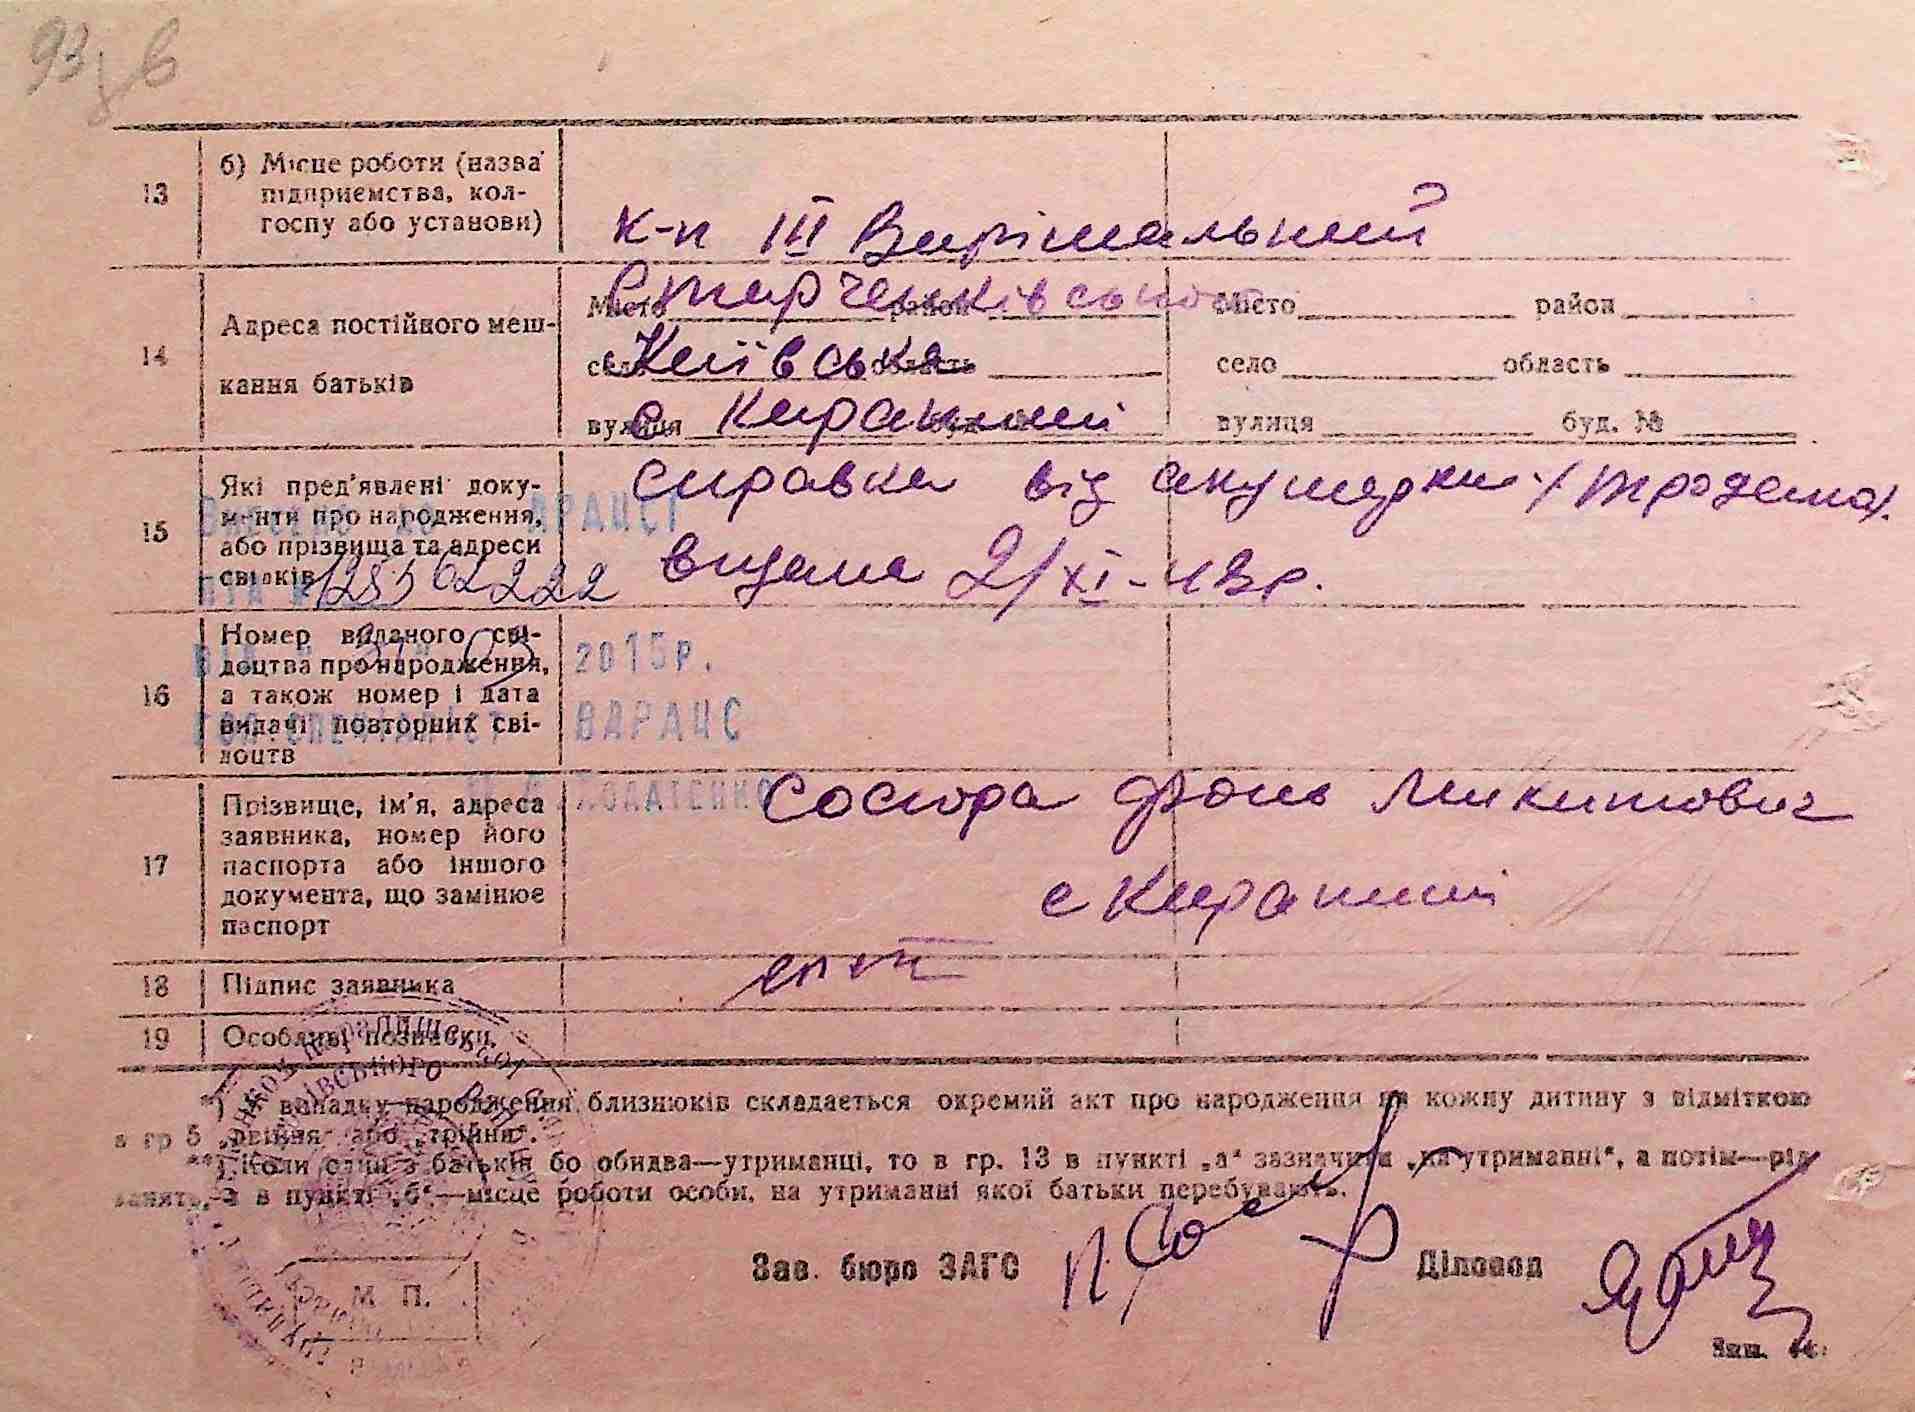 93
13
б) Місце роботи (назва підприємства, колгоспу або установи)
к-п III Вирішальний
14
Адреса постійного мешкання батьків
Місто район
село Київська область
вулиця с Кирании буд.
Місто район
село область
вулиця буд. №
15
Які пред'явлені документи про народження, або прізвища та адреси свідків
справка від акушерки
видана 2/XI-43р.
ДРАЦСГ
16
Номер виданого свідоцтва про народження, а також номер і дата видачі повторних свідоцтв
2015р.
ВДРАЦС
17
Прізвище, ім'я, адреса заявника, номер його паспорта або іншого документа, що замінює паспорт
Сосюра Микитович
с Кирании
18
Підпис заявника
19
Особливі познаски
*) В випадку народження близнюків складається окремий акт про народження на кожну дитину з відміткою
в гр 5 „двійня“ або „трійня“.
**) Коли один з батьків бо обидва—утриманці, то в гр. 13 в пункті „а“ зазначити „на утриманні“, а потім—рід
занять, а в пункті „б“—місце роботи особи, на утриманні якої батьки перебувають.
Зав. бюро ЗАГС
Діловод
М. П.